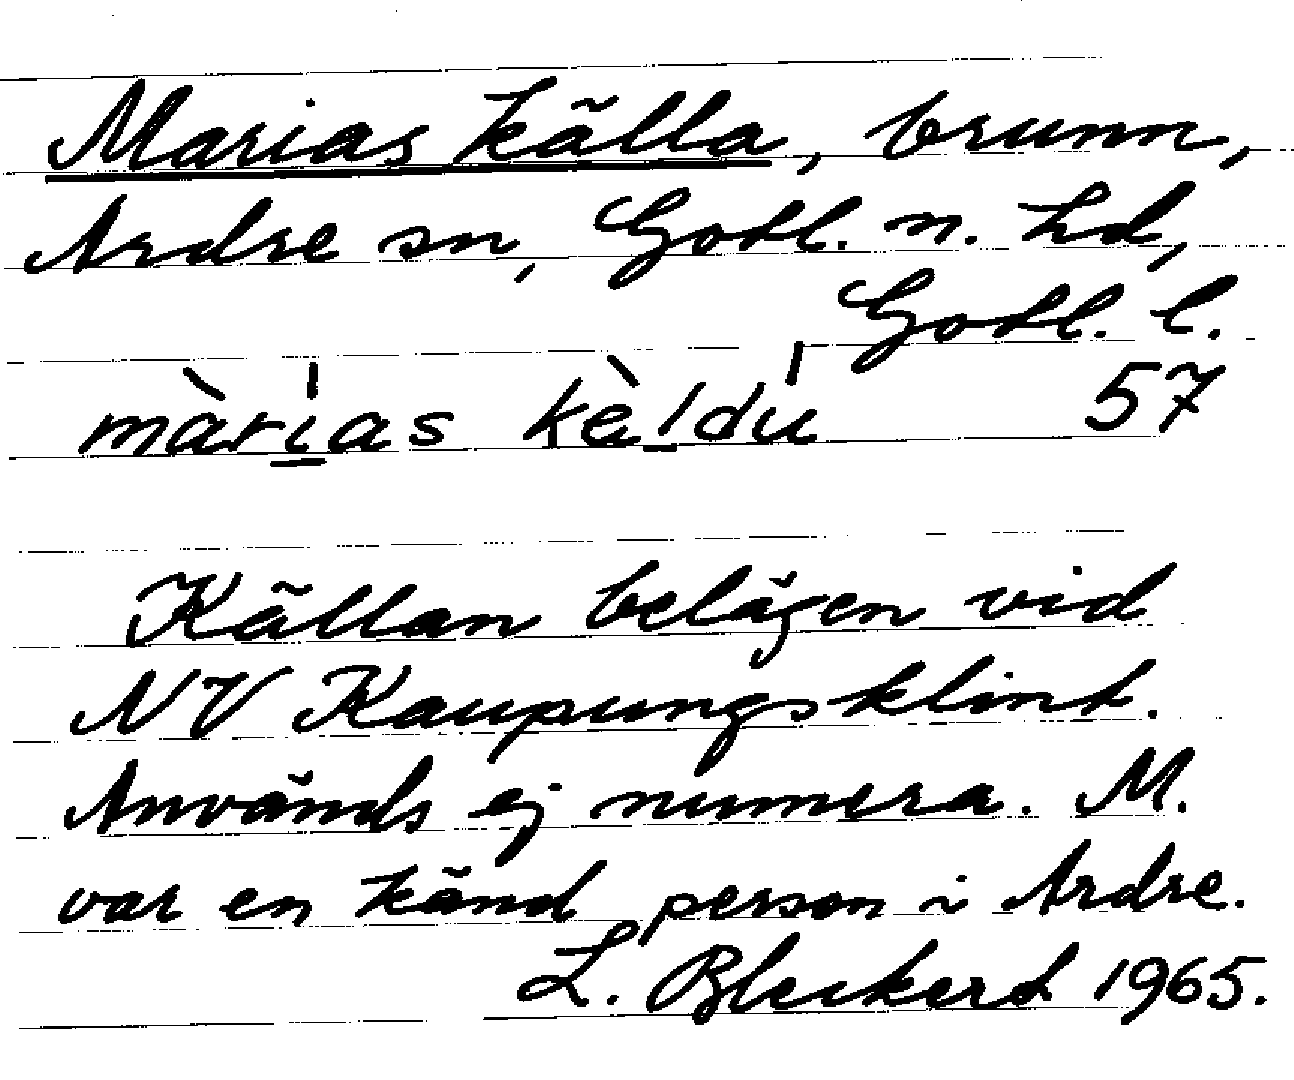 Marias källa, brunn,
Ardre sn, Gotl. n. hd,
Gotl. l.
màrias kèldu 57
Källan belägen vid
NV Kaupungsklint.
Används ej numera. M.
var en känd person i Ardre.
L. Bleckert 1965.